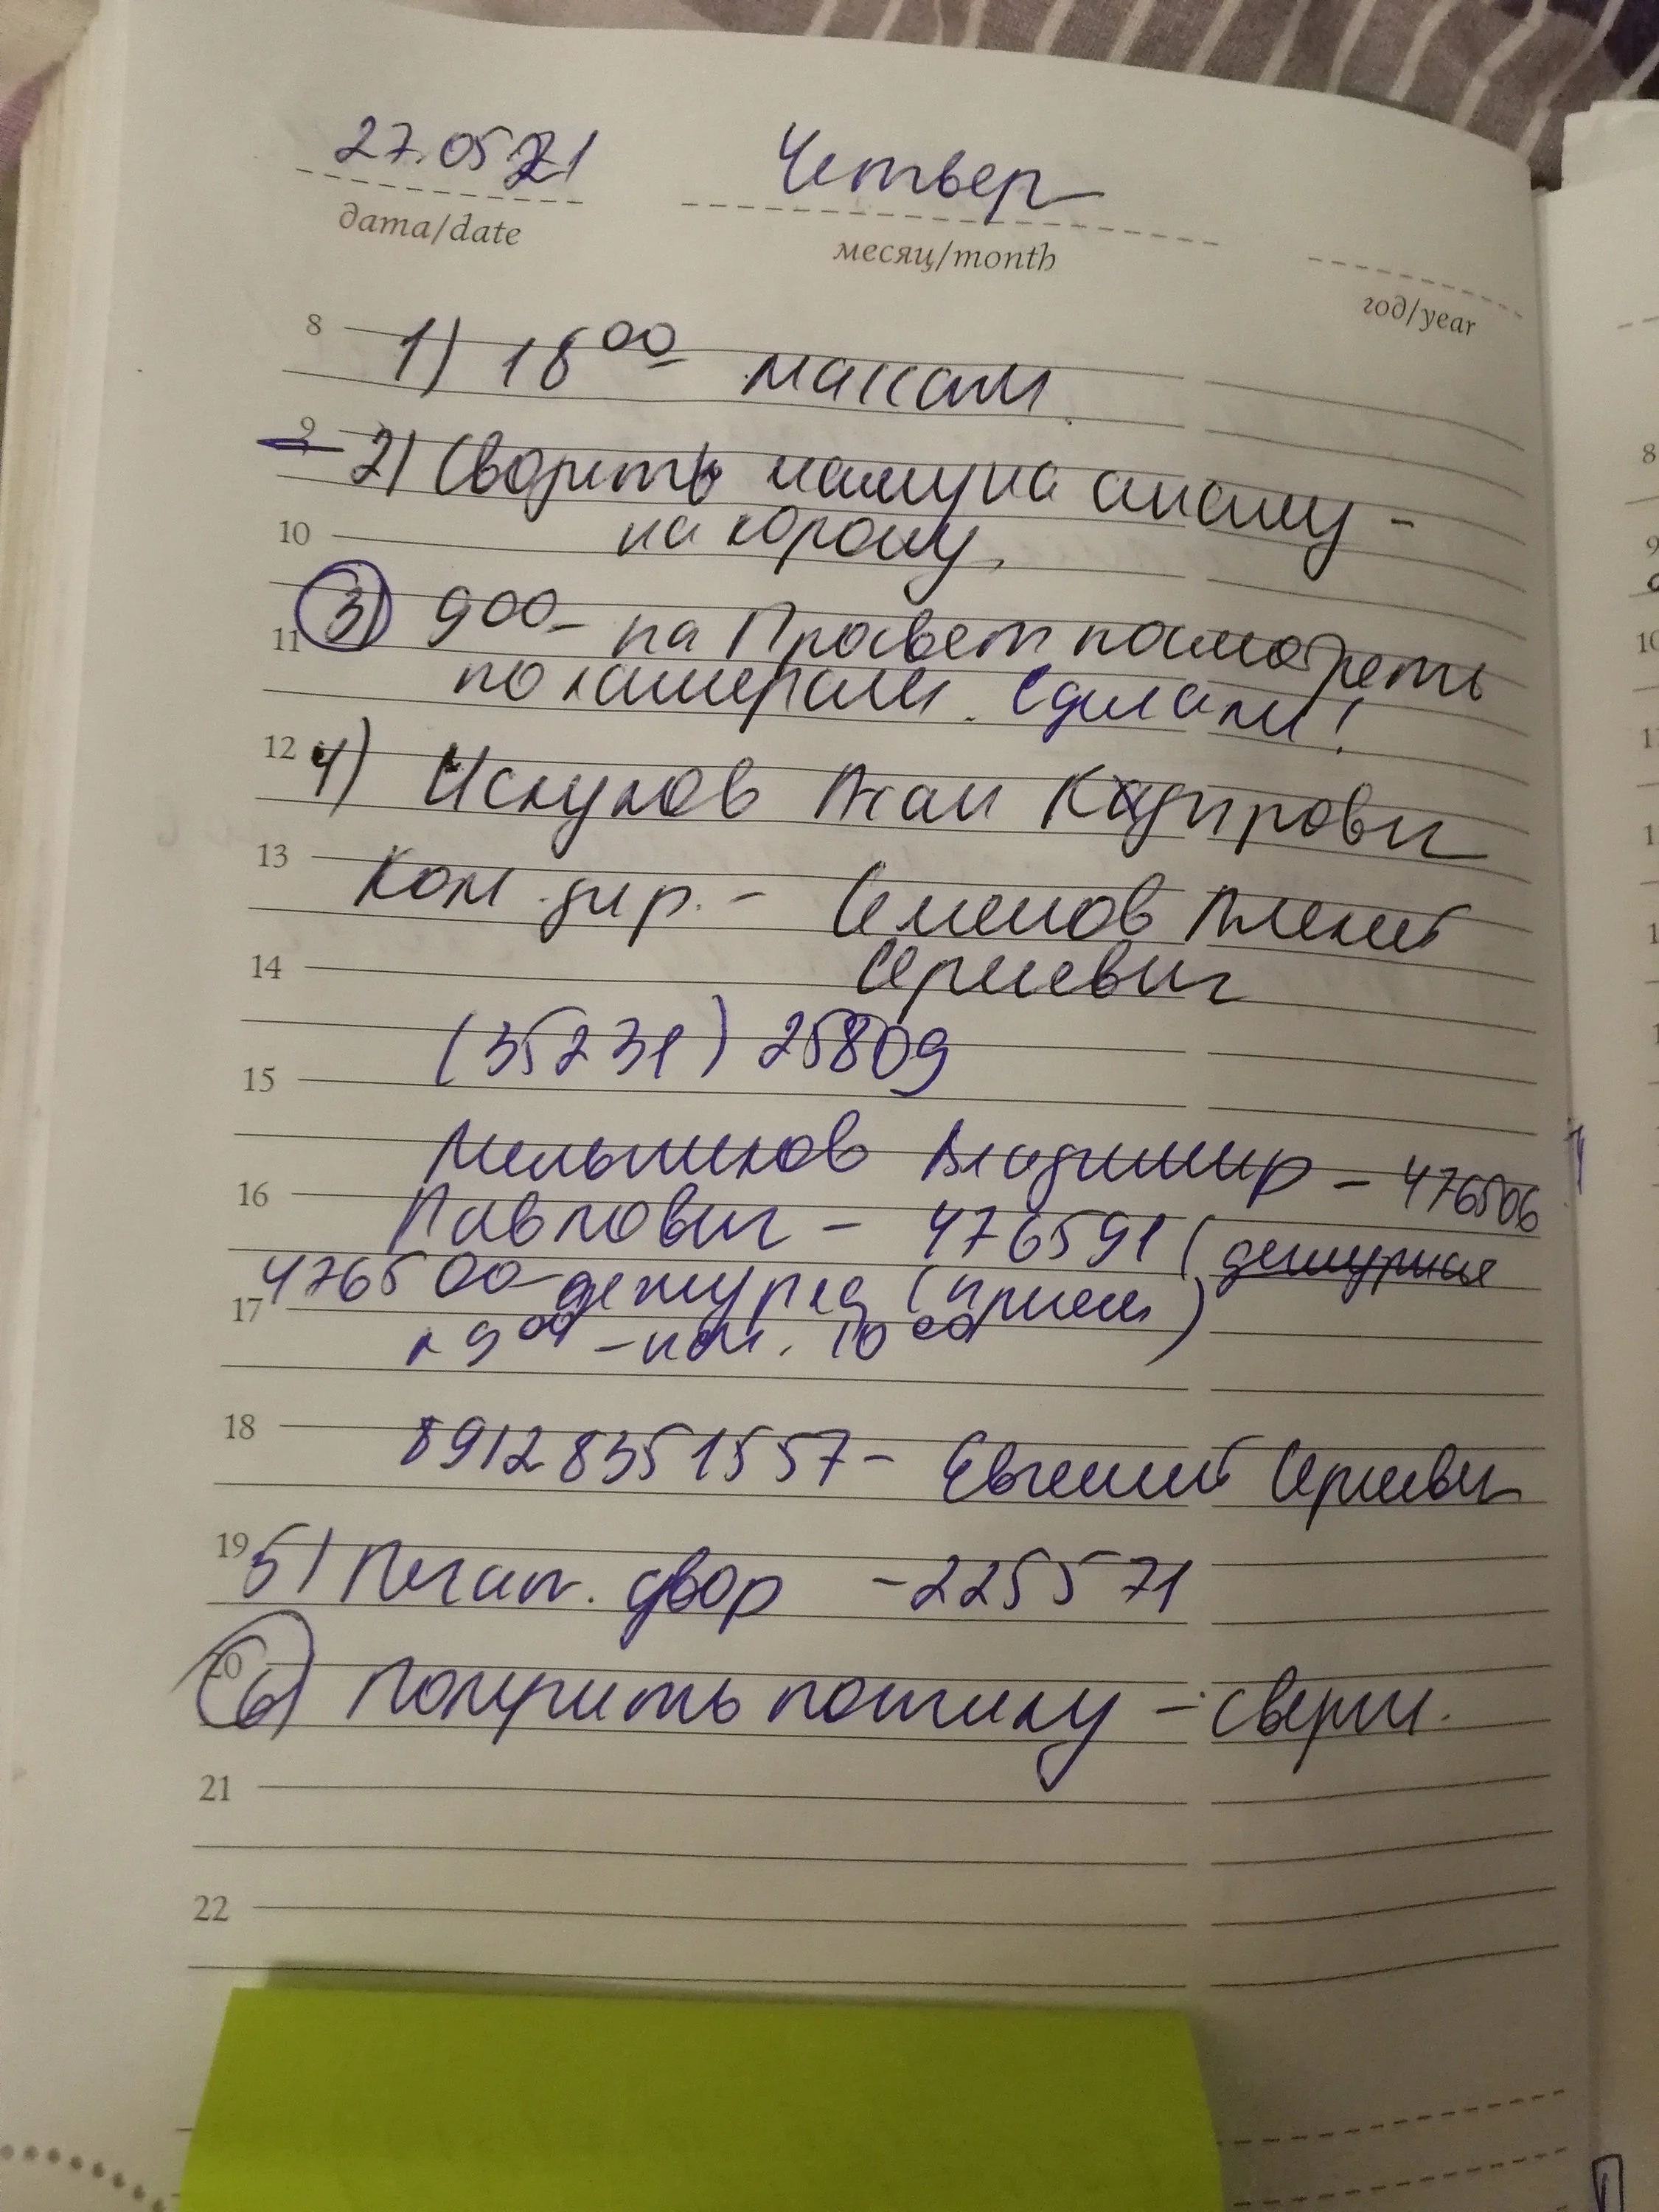 27.05.21 Четверг
дата/date месяц/month год/year
8 1) 18 00 массаж
9 2) Сводить маму на анализ -
10 на корону
11 3) 9 00 - на Просвет посмотреть
по камерам. Сделали!
12 4) Искуков Кадирович
13 Ком. дир. - Семенов Алексей
14 Сергеевич
(35231) 25809
15
Мельников Владимир - 476506
16 Павлович - 476591 (дежурная
476500 - дежурка (прием)
17 к 9 00 - 10 00
18 89128351557 - Евгений Сергеевич
19 5) Печат. двор - 225571
20 6) Получить посылку - сверла.
21
22